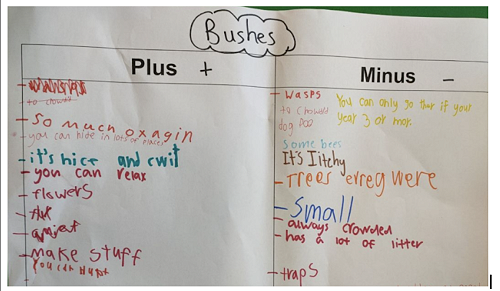 Bushes
Plus +
to crowded
- so much oxagin
you can hide in lots of places
- it's nice and cwit
- you can relax
- flowers
- make stuff
you can
Minus -
- wasps
to crowded
dog poo
some bees
It's Iitchy
- Trees erreg were
- small
- always crowded
- has a lot of litter
- traps
You can only go thar if your
year 3 or mor.